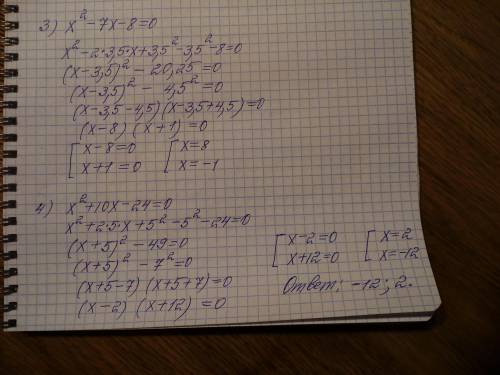 3) x² - 7x - 8 = 0
x² - 2·3,5·x + 3,5² - 3,5² - 8 = 0
(x - 3,5)² - 20,25 = 0
(x - 3,5)² - 4,5² = 0
(x - 3,5 - 4,5)(x - 3,5 + 4,5) = 0
(x - 8) (x + 1) = 0
[ x - 8 = 0 [ x = 8
[ x + 1 = 0 [ x = -1
4) x² + 10x - 24 = 0
x² + 2·5·x + 5² - 5² - 24 = 0
(x + 5)² - 49 = 0
(x + 5)² - 7² = 0
(x + 5 - 7) (x + 5 + 7) = 0
(x - 2) (x + 12) = 0
[ x - 2 = 0 [ x = 2
[ x + 12 = 0 [ x = -12
Ответ: -12; 2.